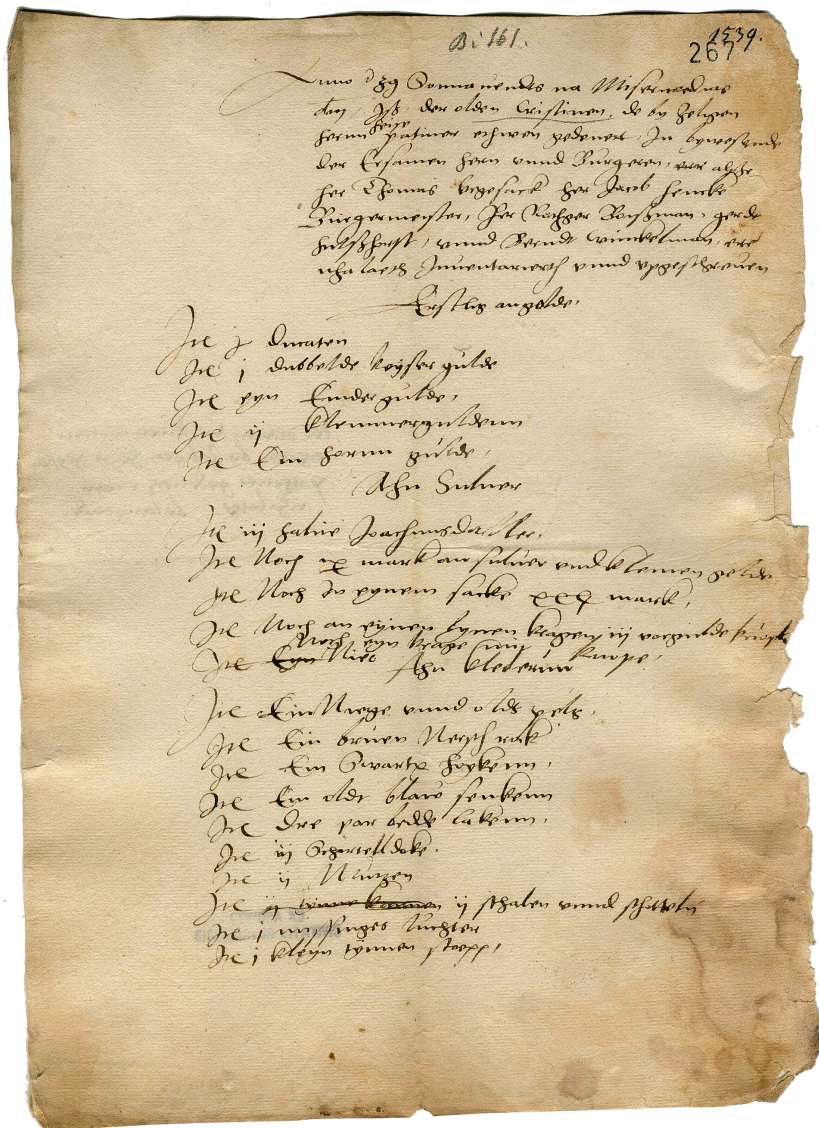 Bi 161.
1539.
267
Anno 39 Sonnauendts na Misericordias
dm, Iß der olden Cristinen, de by zeligen
hernn patiner gedenet, In bywesende
der Ersamen hern vnnd Burgeren, alße
her Thomas Vegesack her Jacob Hencke
Burgermeister, Her Rotger Boißman, gerdt
hulßhorst, vnnd Berndt winkelman, ere
nhalaeth Inuentariert vnnd vpgeschreuen
Erstlig an golde,
Ite j ducaten
Ite j dubbelde keyser gulde
Ite eyn Emder gulde,
Ite ij klemmerguldenn
Ite Ein hornn gulde,
Ahn Suluer
Ite iij halue Joachimsdaller,
Ite Noch ix mark an suluer vnd kleinen gelde
Ite Noch In eynem sacke xxx marck,
Ite Noch an eynen kragen iij vorgulde knope
Noch eyn krage knope,
Ite Eyn Nie
Ahn klederenn
Ite Ein Niege vnnd olde pels,
Ite Ein bruen Neersch rock
Ite Ein Swarte hoykenn,
Ite Ein oldt blaw
Ite dre par bedde lakenn,
Ite iij Schortelldoke,
Ite ij Mutzen
Ite ij tynne kannen ij schalen vnnd
Ite j missinges luchter
Ite j kleyn tynnen stoep,